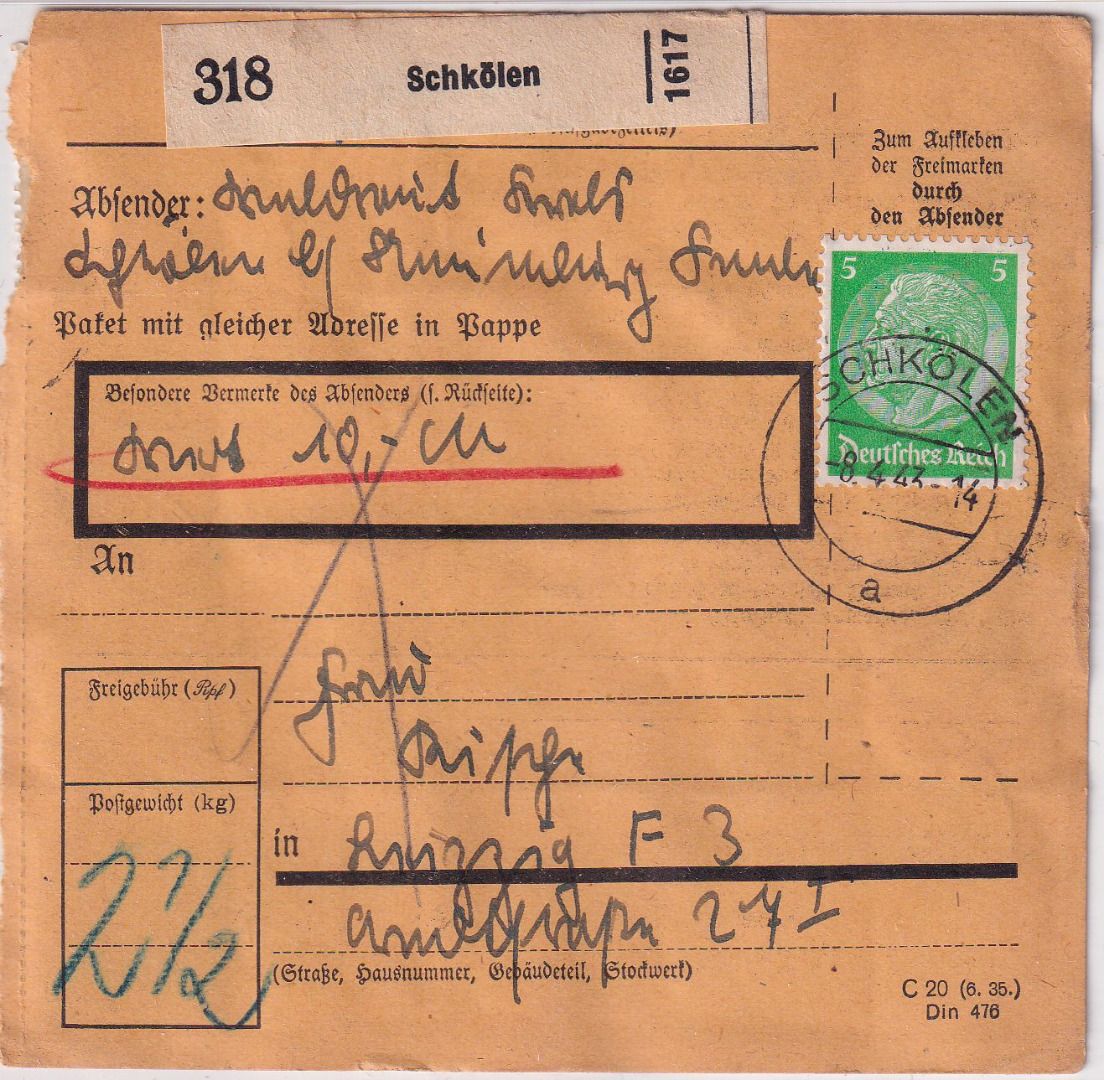 318 Schkölen 1617
Zum Aufkleben
der Freimarken
durch
den Absender
Absender: Waldtraut Krebs
Schkölen b/ Naumburg Saale
Paket mit gleicher Adresse in Pappe
5 5
Deutsches Reich
SCHKÖLEN
-8.4.43-14
a
Besondere Vermerke des Absenders (s. Rückseite):
Wert 10,- M
An
Freigebühr (Rpf)
Frau
Postgewicht (kg)
2 1/2
in Leipzig F 3
27 I
(Straße, Hausnummer, Gebäudeteil, Stockwerk)
C 20 (6. 35.)
Din 476